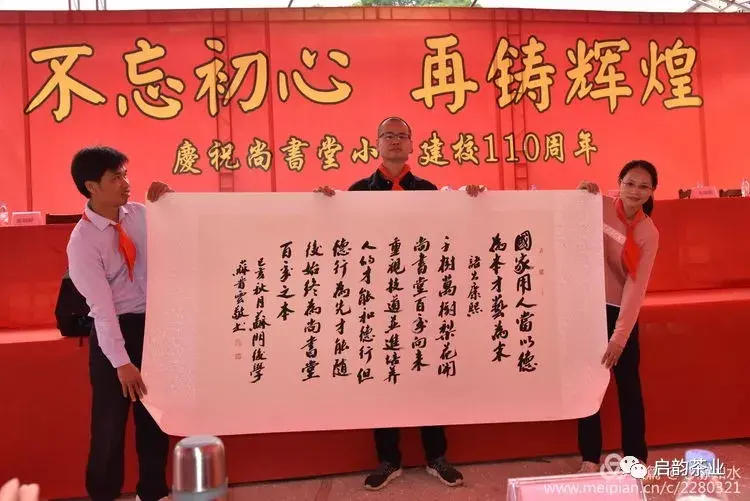 不忘初心 再铸辉煌
慶祝尚書堂小 建校110周年
國家用人當以德
為本才藝為末
語出康熙
千樹萬樹梨花開
尚書堂百年向来
重視授道並進培养
人的才能和德行但
德行為先才能随
後始終為尚書堂
百年之本
己亥秋月蘇門後學
蘇 雲敬书
启韵茶业
www.meipian.cn/c/2280321